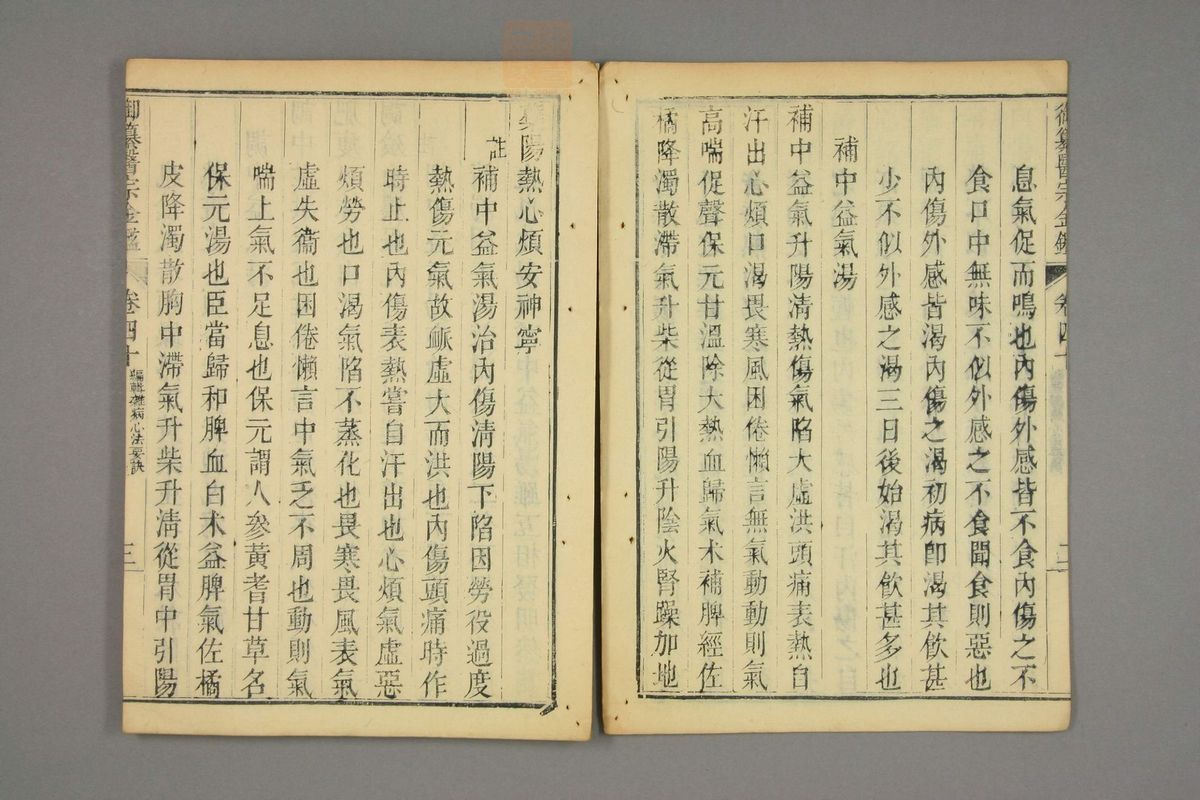 御纂醫宗金鑑 卷四十 二
息氣促而鳴也內傷外感皆不食內傷之不
食口中無味不似外感之不食聞食則惡也
內傷外感皆渴內傷之渴初病即渴其飲甚
少不似外感之渴三日後始渴其飲甚多也
補中益氣湯
補中益氣升陽清熱傷氣陷大虛洪頭痛表熱自
汗出心煩口渴畏寒風困倦懶言無氣動動則氣
高喘促聲保元甘溫除大熱血歸氣朮補脾經佐
橘降濁散滯氣升柴從胃引陽升陰火腎躁加地
陽熱心煩安神寧
註
補中益氣湯治內傷清陽下陷因勞役過度
熱傷元氣故脈虛大而洪也內傷頭痛時作
時止也內傷表熱嘗自汗出也心煩氣虛惡
煩勞也口渴氣陷不蒸化也畏寒畏風表氣
虛失衞也困倦懶言中氣乏不周也動則氣
喘上氣不足息也保元謂人參黃耆甘草名
保元湯也臣當歸和脾血白朮益脾氣佐橘
皮降濁散胸中滯氣升柴升清從胃中引陽
御纂醫宗金鑑 卷四十 編輯雜病心法要訣 三